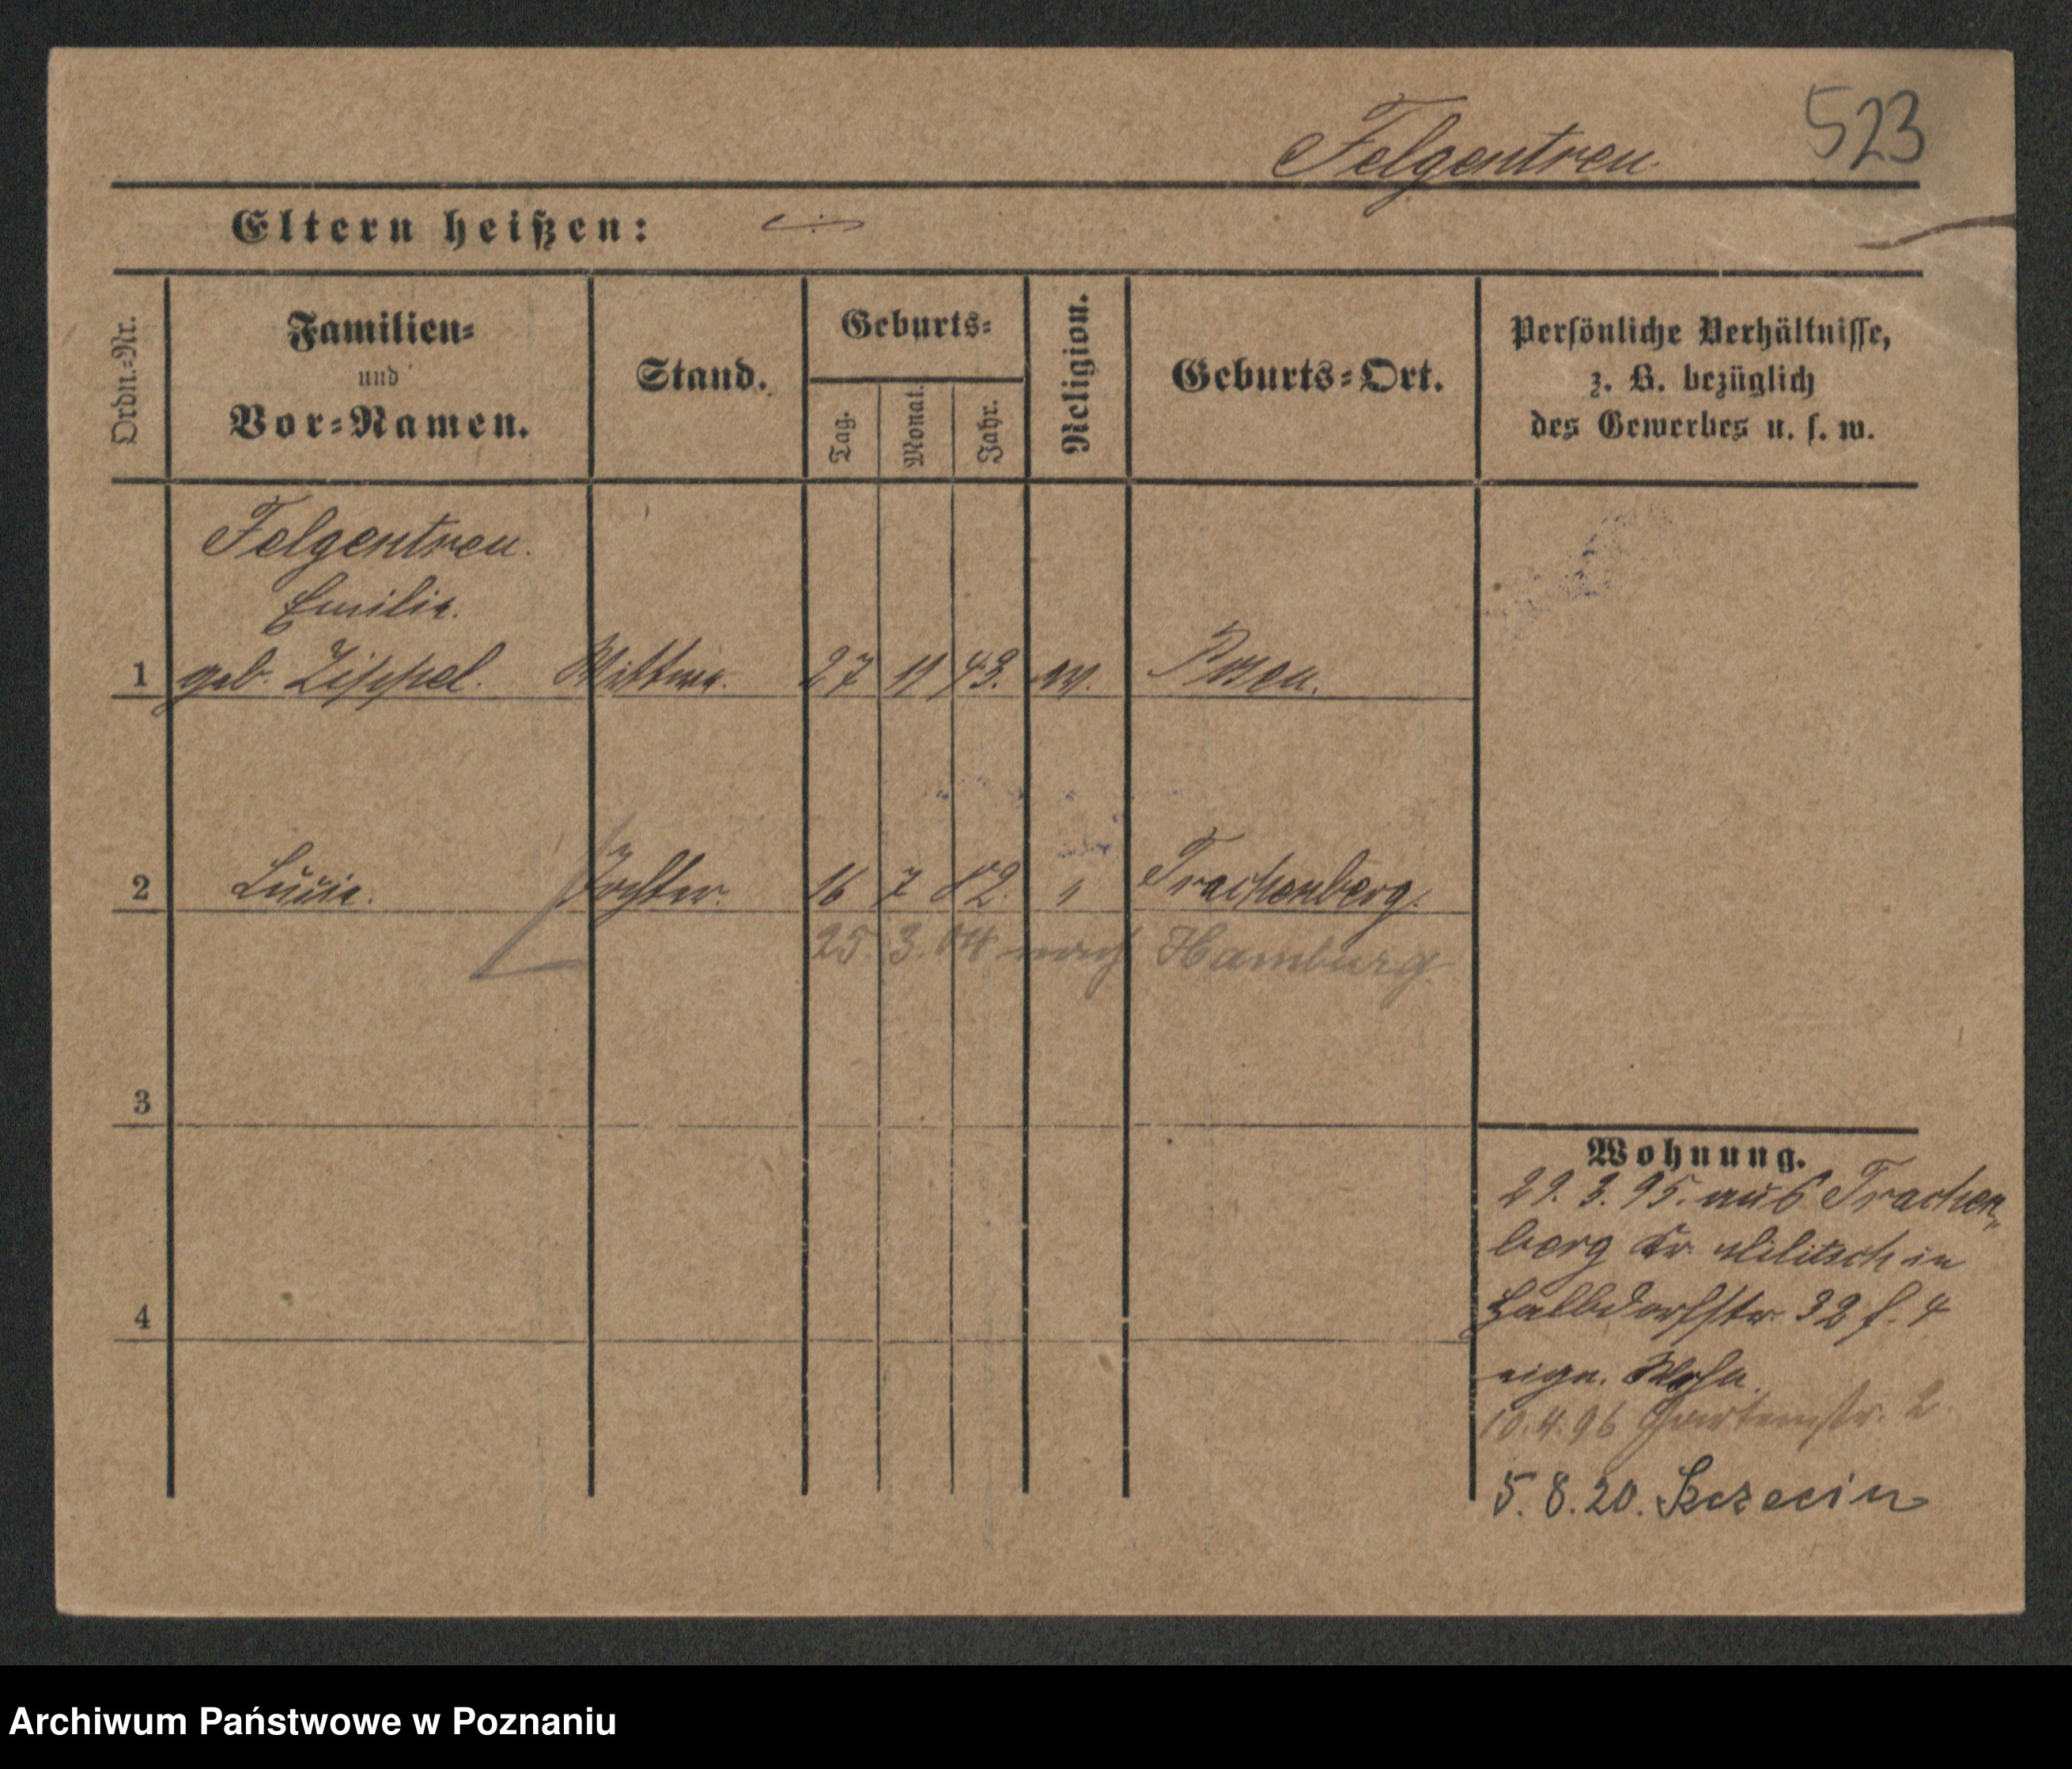 Felgentreu 523
Eltern heißen:
Ordn.-Nr.
Familien-
und
Vor-Namen.
Stand.
Geburts-
Tag.
Monat.
Jahr.
Religion.
Geburts-Ort.
Persönliche Verhältnisse,
z. B. bezüglich
des Gewerbes u. s. w.
Felgentreu.
Emilie.
1 geb. Zippel. Wittwe. 27 11 43. ev. Posen.
2 Lucie. Tochter. 16 7 82. " Trachenberg.
25. 3. 04 nach Hamburg
3
4
Wohnung.
29. 3. 95. aus Trachen-
berg Kr. Militsch in
Halbdorfstr 32 f. 4
eign. Wohn.
10.4.96 Gartenstr. 2.
5. 8. 20. Szczecin
Archiwum Państwowe w Poznaniu